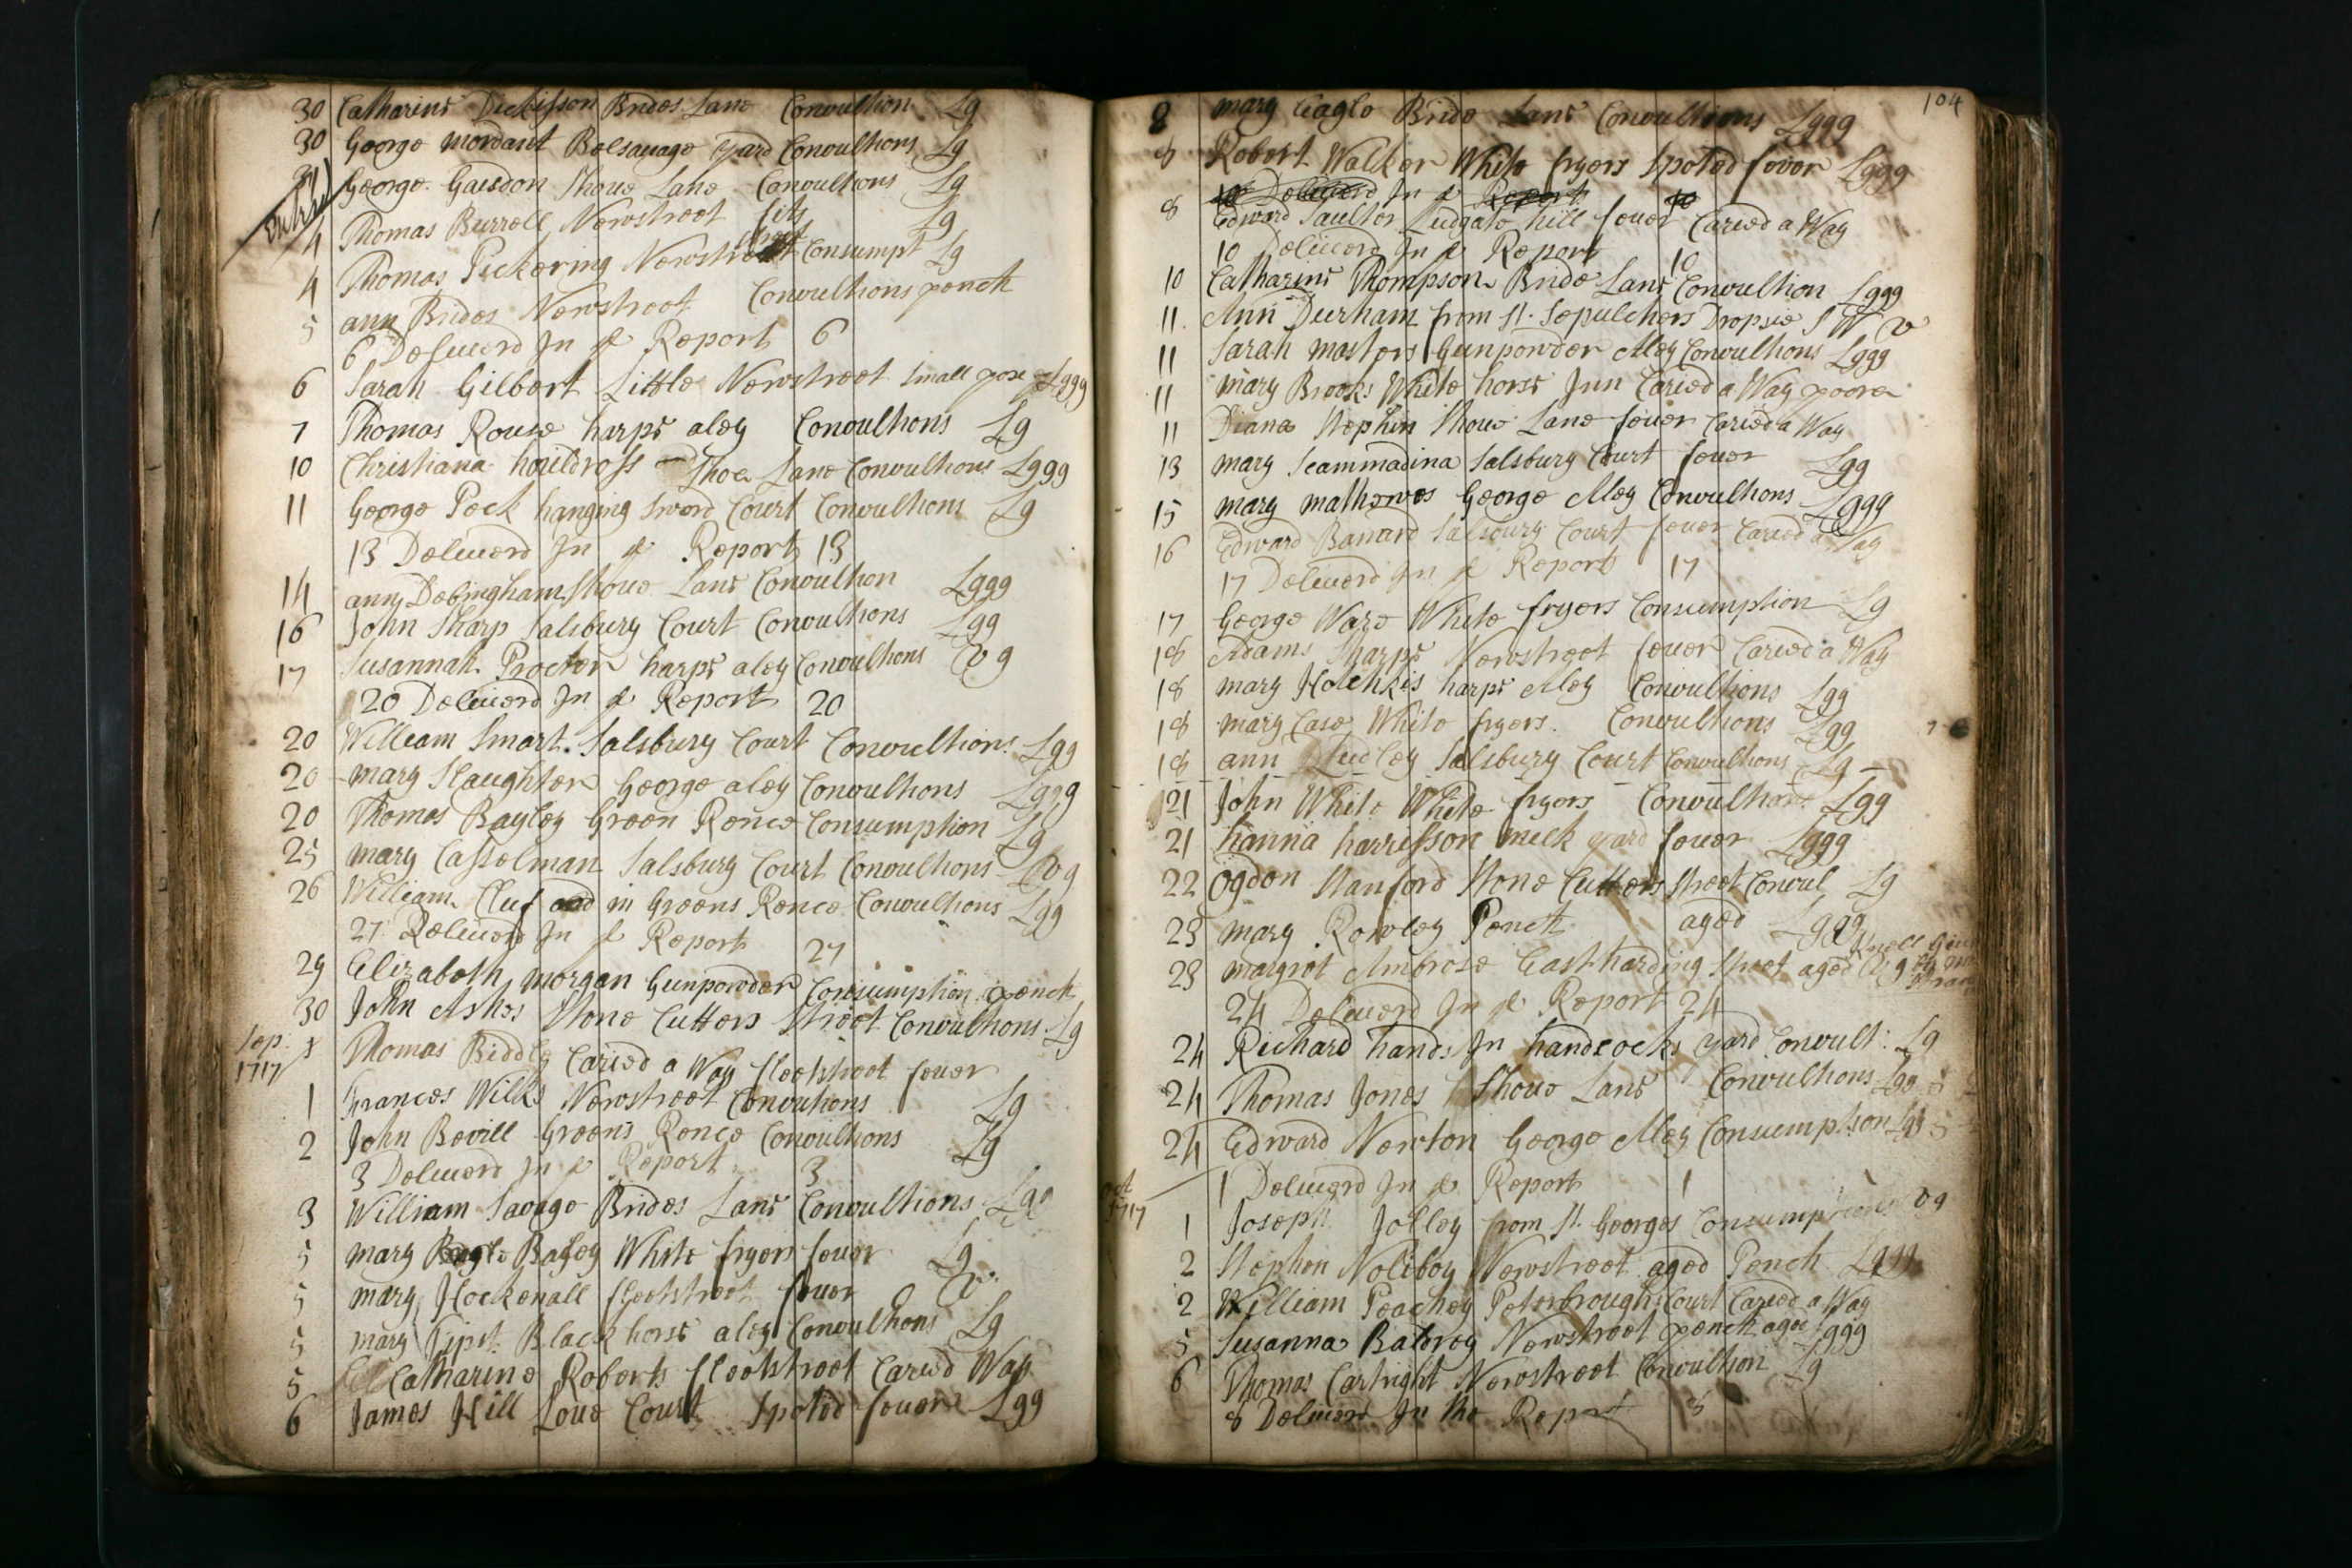 30 Catharine Dickisson Brides Lane Convultion Lg
30 George Mordant Belsauage yard Convultions Lg
George Gaisdon Shoue Lane Convultions Lg
4 Thomas Burrell Newstreet fits Lg
4 Thomas Pickering Newstreet Consumpt Lg
5 ann Brides Newstreet Convultions pench
6 Deliuerd In ye Report 6
6 Sarah Gilbert Little Newstreet Small pox Lggg
7 Thomas Rouse harps aley Convultions Lg
10 Christiana Shoe Lane Convultions Lggg
11 George Peck hanging Sword Court Convultions Lg
13 Deliuerd In ye Report 13
14 ann Debingham Shoue Lane Convultion Lggg
16 John Sharp Salsbury Court Convultions Lgg
17 Susannah Procter harps aley Convultions Vg
20 Deliuerd In ye Report 20
20 William Smart Salsbury Court Convultions Lgg
20 mary Slaughter George aley Convultions Lggg
20 Thomas Bayley Green Rence Consumption Lg
25 mary Casselman Salsbury Court Convultions Vg
26 William Cluf in Greens Rence Convultions Lgg
27 Deliuerd In ye Report 27
29 Elizabeth morgan Gunpowder Consumption pench
30 John Ashes Stone Cutters Street Convultions Lg
Sep. 1717 1 Thomas Biddly Caried a Way fleetstreet feuer
1 Frances Wilks Newstreet Convultions Lg
2 John Bevill Greens Rence Convultions Lg
3 Deliuerd In ye Report 3
3 William Savage Brides Lane Convultions Lgg
5 mary Bayley White fryers feuer Lg
5 mary Hockenall fleetstreet feuer V
5 mary Tipst Black horse aley Convultions Lg
5 Catharine Roberts fleetstreet Caried Way
6 James Hill Loue Court Spoted feuer Lgg
104
8 mary Eagle Bride Lane Convultions Lggg
8 Robert Walker White fryers Spoted fever Lggg
10 Deliuerd In ye Report 10
8 Edward Saulter Ludgate hill feuer Caried a Way
10 Deliuerd In ye Report 10
10 Catharine Thompson Bride Lane Convultion Lggg
11 Ann Durham from St. Sepulchers Dropsie S W V
11 Sarah masters Gunpowder Aley Convultions Lggg
11 mary Brooks White horse Inn Caried a Way poore
11 Diana Stephin Shoue Lane feuer Caried a Way
13 mary Scammadina Salsbury Court feuer Lgg
15 mary mathewes George Aley Convultions Lggg
16 Edward Banard Salsbury Court feuer Caried a Way
17 Deliuerd In ye Report 17
17 George Ware White fryers Consumption Lg
18 Adams Sharpe Newstreet feuer Caried a Way
18 mary Hotchkis harps Aley Convultions Lgg
18 mary Case White fryers Convultions Lgg
18 ann Ludley Salsbury Court Convultions Lg
21 John White White fryers Convultions Lgg
21 hanna harrisson milk yard feuer Lggg
22 Ogden Stanford Stone Cutters Street Convul Lg
23 mary Rowley Pench aged Lggg
23 margret Ambrose East harding Street aged
24 Deliuerd In ye Report 24
24 Richard hands In handcocks yard Convult: Lg
24 Thomas Jones Shoue Lane Convultions Lgg
24 Edward Newton George Aley Consumption Lgg
Oct 1717 1 Deliuerd In ye Report 1
1 Joseph Jolley from St. Georges Consumption Vg
2 Stephen Noliboy Newstreet aged Pench Lggg
2 William Peachey Peterbrough Court Caried a Way
5 Susanna Baldrey Newstreet pench aged Lggg
6 Thomas Cartright Newstreet Convultion Lg
8 Deliuerd In the Report 8